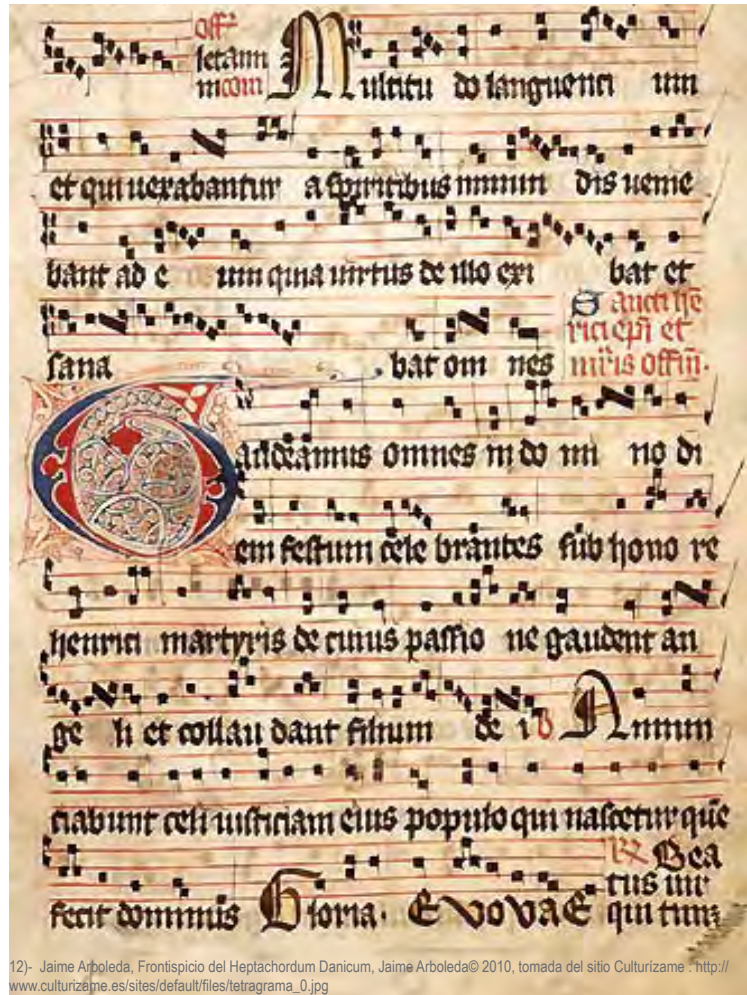 off
letam
m com Multitu do languenti um
et qui uexabantur a spiritibus inmun dis uenie
bant ad e um quia uirtus de illo exi bat et
sana bat om nes
Sancti hē
rici epī et
mris offm.
Gaudeamus omnes in do mi no di
em festum cele brantes sub hono re
henrici martyris de cuius passio ne gaudent an
ge li et collau dant filium de i Annun
ciabunt celi iusticiam eius populo qui nascetur quē
fecit dominus Gloria. EVOVAE
Bea
tus uir
qui tim
12)- Jaime Arboleda, Frontispicio del Heptachordum Danicum, Jaime Arboleda© 2010, tomada del sitio Culturízame : http://
www.culturizame.es/sites/default/files/tetragrama_0.jpg